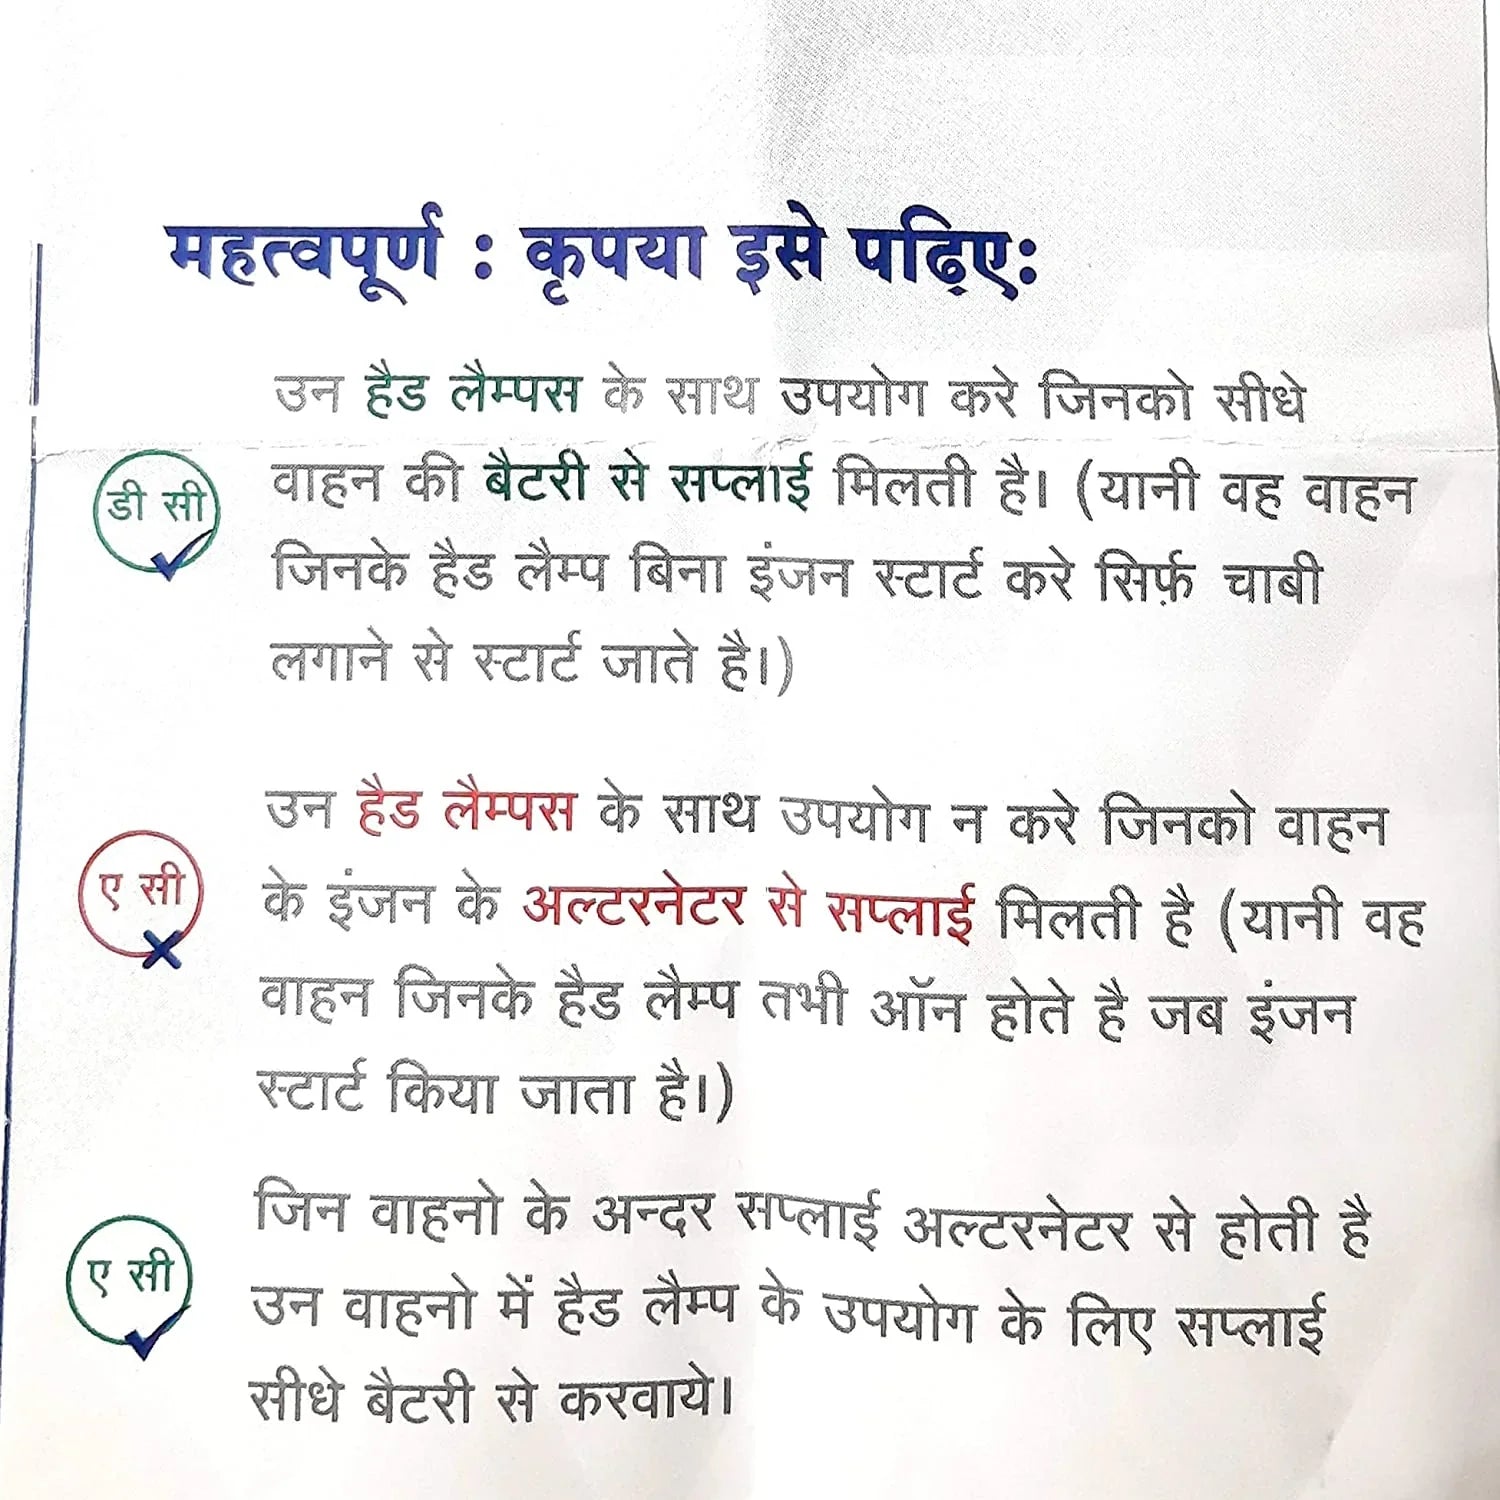 महत्वपूर्ण : कृपया इसे पढ़िए:
उन हैड लैम्पस के साथ उपयोग करे जिनको सीधे
डी सी
वाहन की बैटरी से सप्लाई मिलती है। (यानी वह वाहन
जिनके हैड लैम्प बिना इंजन स्टार्ट करे सिर्फ़ चाबी
लगाने से स्टार्ट जाते है।)
उन हैड लैम्पस के साथ उपयोग न करे जिनको वाहन
ए सी
के इंजन के अल्टरनेटर से सप्लाई मिलती है (यानी वह
वाहन जिनके हैड लैम्प तभी ऑन होते है जब इंजन
स्टार्ट किया जाता है।)
जिन वाहनो के अन्दर सप्लाई अल्टरनेटर से होती है
ए सी
उन वाहनो में हैड लैम्प के उपयोग के लिए सप्लाई
सीधे बैटरी से करवाये।